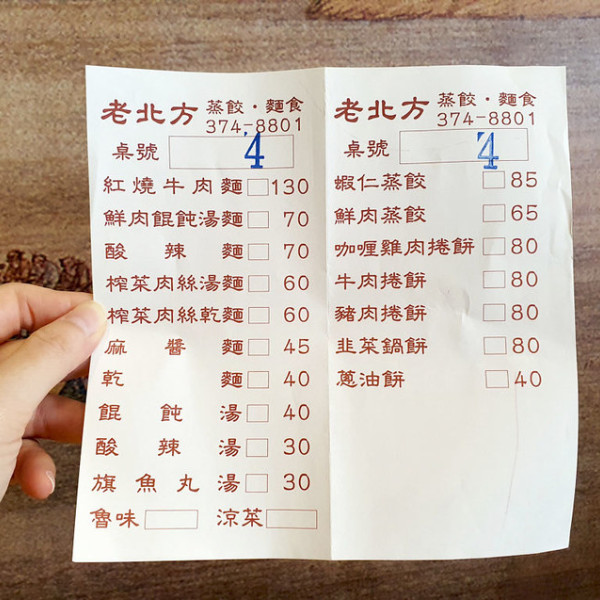 老北方 蒸餃·麵食
374-8801
桌號 4
紅燒牛肉麵 130
鮮肉餛飩湯麵 70
酸辣麵 70
榨菜肉絲湯麵 60
榨菜肉絲乾麵 60
麻醬麵 45
乾麵 40
餛飩湯 40
酸辣湯 30
旗魚丸湯 30
魯味 涼菜
老北方 蒸餃·麵食
374-8801
桌號 4
蝦仁蒸餃 85
鮮肉蒸餃 65
咖喱雞肉捲餅 80
牛肉捲餅 80
豬肉捲餅 80
韭菜鍋餅 80
蔥油餅 40